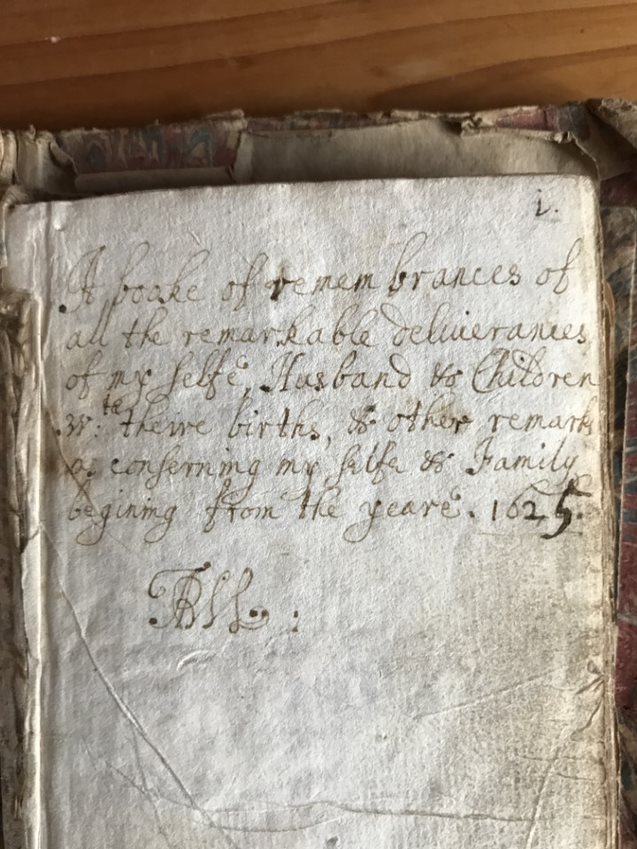 1.
A booke of remembrances of
all the remarkable deliuerances
of my selfe, Husband & Children
wth theire births, & other remarks
as conserning my selfe & Family
begining from the yeare. 1625.